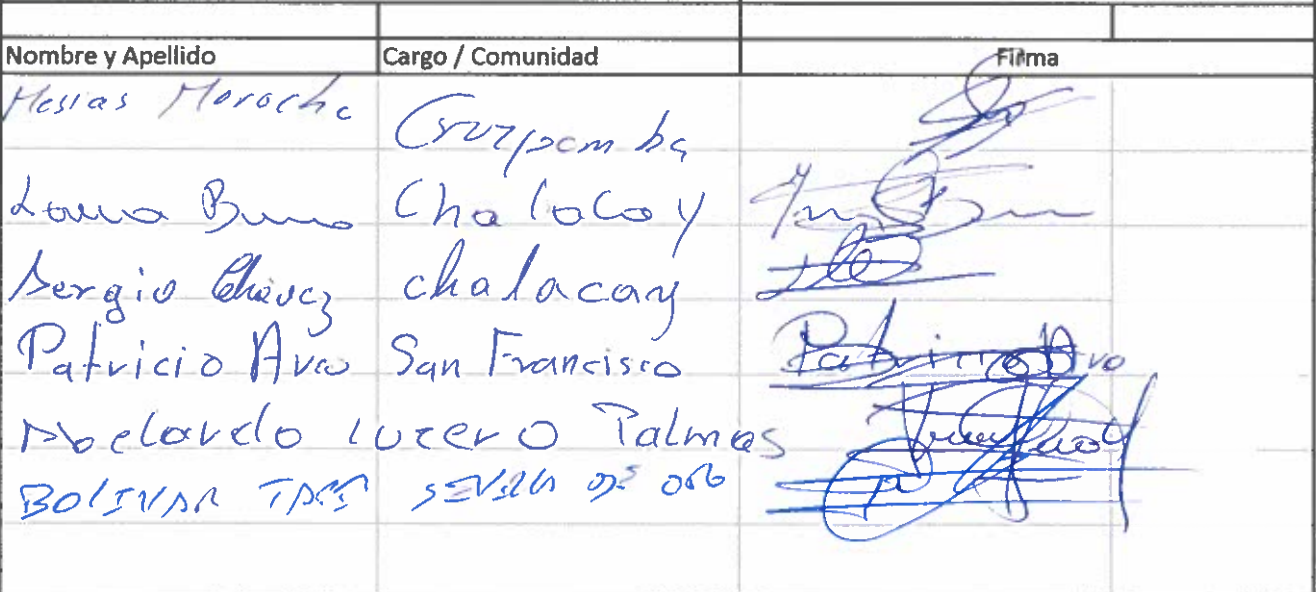 Nombre y Apellido Cargo / Comunidad Firma
Mesias Morocho Cruzpamba
Bueno Chalacay
Sergio Chávez chalacay
Patricio Arco San Francisco Patricio Aro
Abelardo Lucero Palmas
BOLIVAR SEVILLA DE ORO